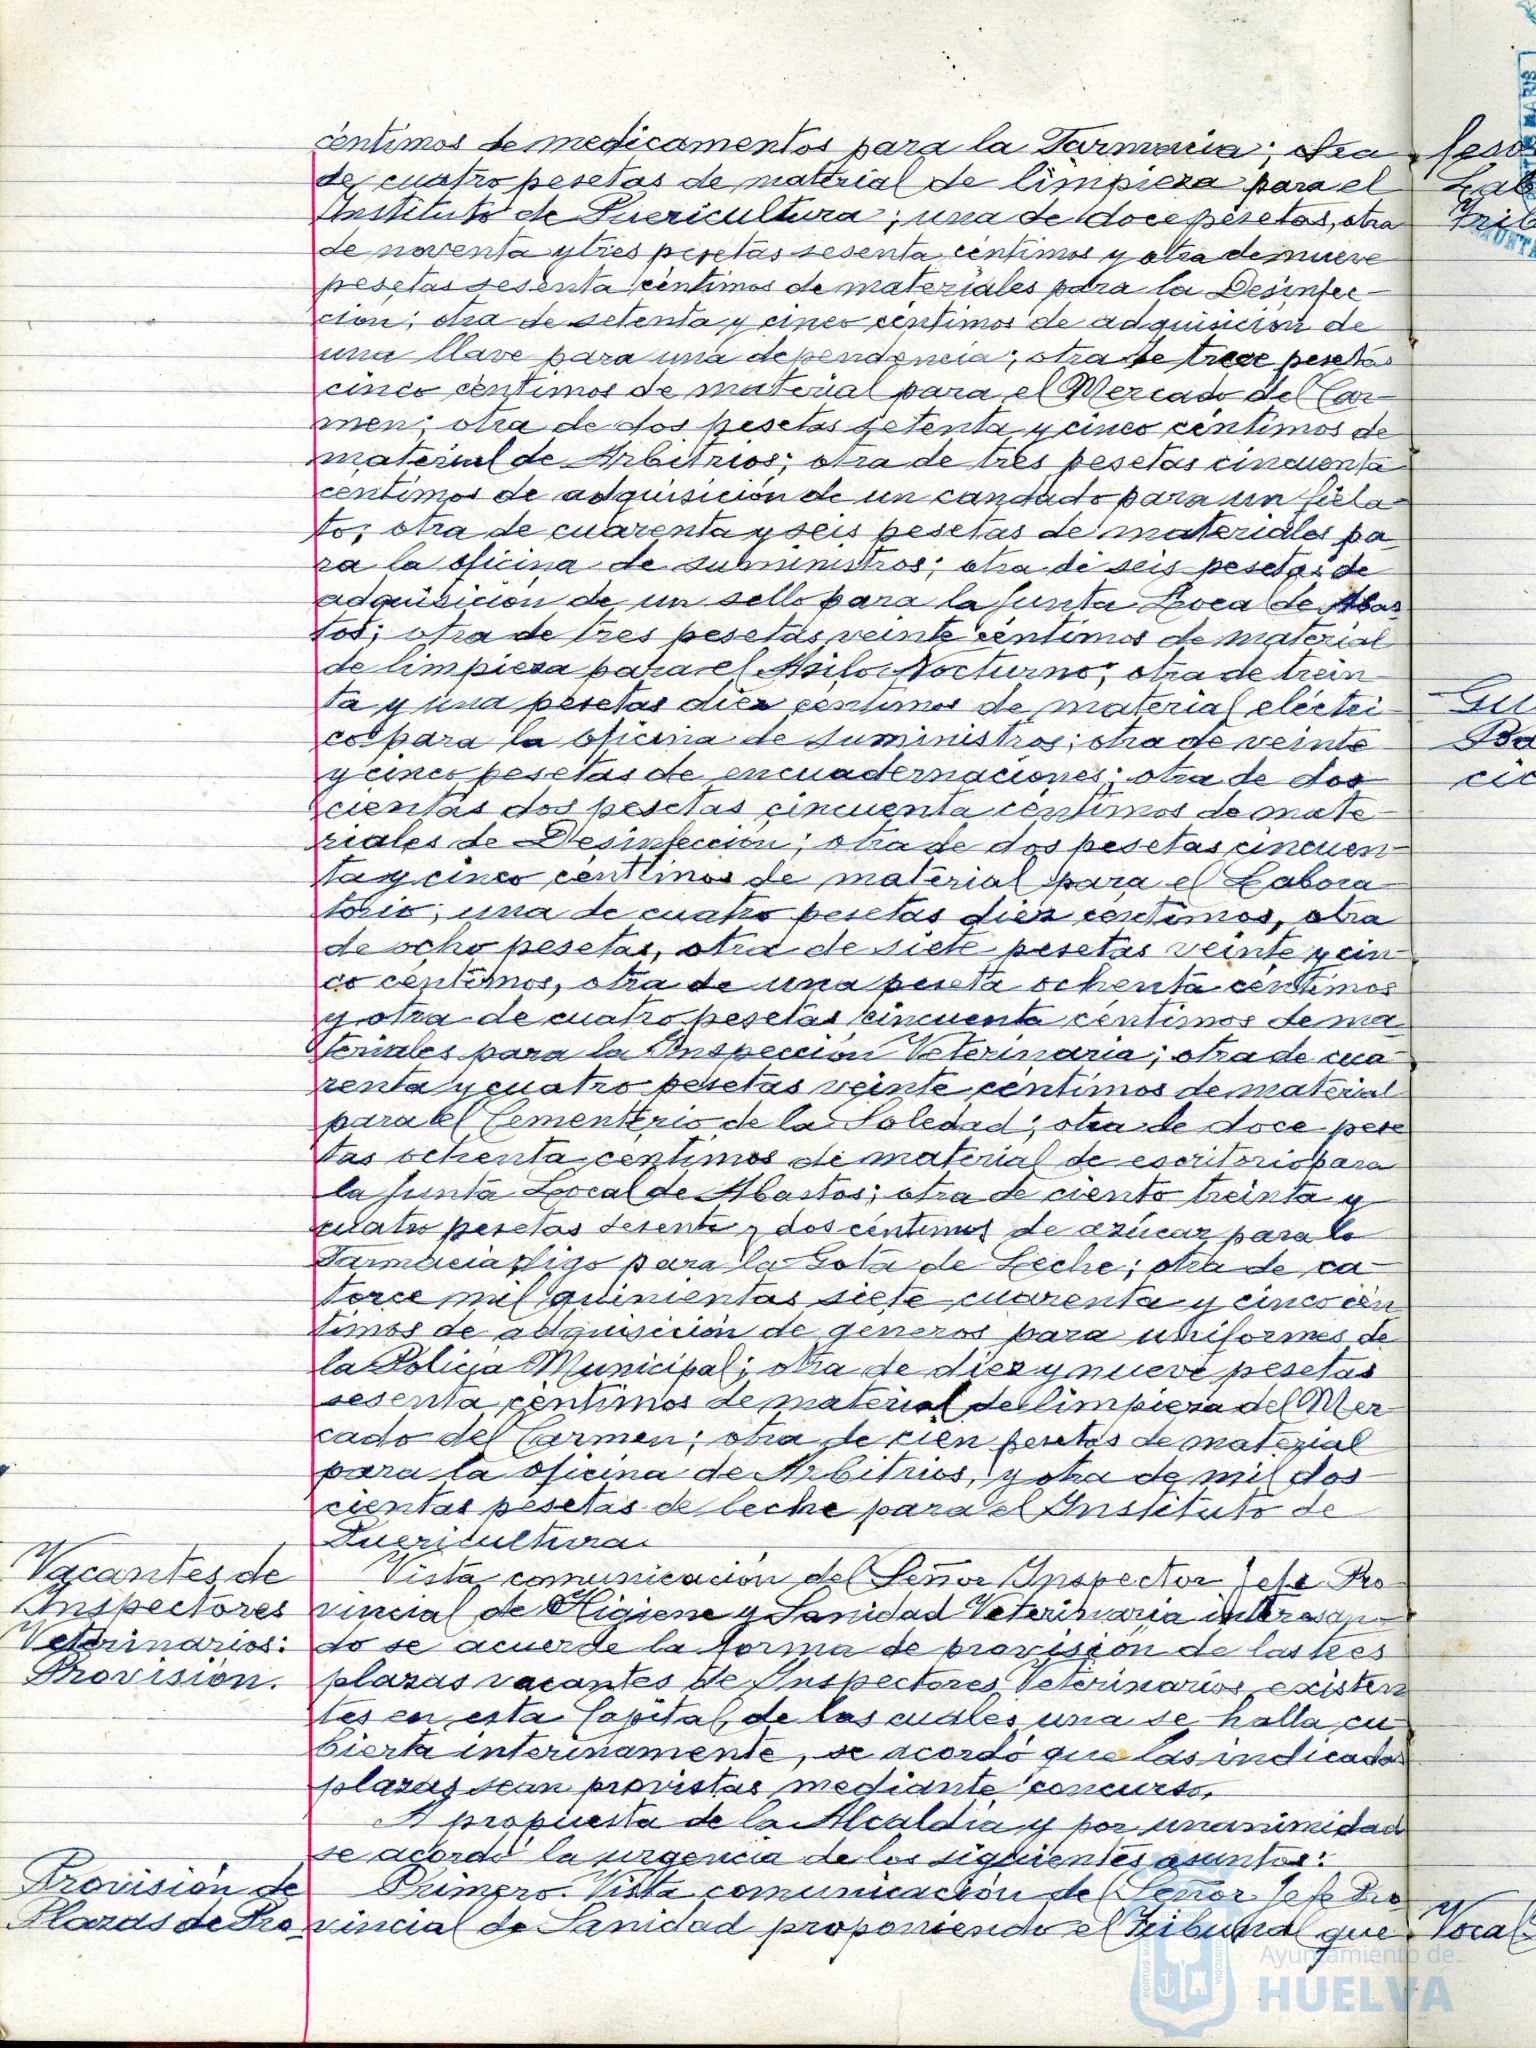 céntimos de medicamentos para la Farmacia; otra
de cuatro pesetas de material de limpieza para el
Instituto de Puericultura; una de doce pesetas, otra
de noventa y tres pesetas sesenta céntimos y otra de nueve
pesetas sesenta céntimos de materiales para la Desinfec-
ción; otra de setenta y cinco céntimos de adquisición de
una llave para una dependencia; otra de trece pesetas
cinco céntimos de material para el Mercado del Car-
men; otra de dos pesetas setenta y cinco céntimos de
material de Arbitrios; otra de tres pesetas cincuenta
céntimos de adquisición de un candado para un fiela-
to; otra de cuarenta y seis pesetas de materiales pa-
ra la oficina de suministros; otra de seis pesetas de
adquisición de un sello para la Junta Local de Abas-
tos; otra de tres pesetas veinte céntimos de material
de limpieza para el Asilo Nocturno; otra de trein-
ta y una pesetas diez céntimos de material eléctri-
co para la oficina de suministros; otra de veinte
y cinco pesetas de encuadernaciones; otra de dos-
cientas dos pesetas cincuenta céntimos de mate-
riales de Desinfección; otra de dos pesetas cincuen-
ta y cinco céntimos de material para el Labora-
torio; una de cuatro pesetas diez céntimos, otra
de ocho pesetas, otra de siete pesetas veinte y cin-
co céntimos, otra de una peseta ochenta céntimos
y otra de cuatro pesetas cincuenta céntimos de ma-
teriales para la Inspección Veterinaria; otra de cua-
renta y cuatro pesetas veinte céntimos de material
para el Cementerio de la Soledad; otra de doce pese
tas ochenta centimos de material de escritorio para
la Junta Local de Abastos; otra de ciento treinta y
cuatro pesetas sesenta y dos céntimos de azúcar para la
Farmacia digo para la Gota de Leche; otra de ca-
torce mil quinientas siete cuarenta y cinco cén
timos de adquisición de géneros para uniformes de
la Policía Municipal; otra de diez y nueve pesetas
sesenta céntimos de material de limpieza del Mer-
cado del Carmen; otra de cien pesetas de material
para la oficina de Arbitrios, y otra de mil dos-
cientas pesetas de leche para el Instituto de
Puericultura.
Vacantes de
Inspectores
Veterinarios:
Provisión.
Vista comunicación del Señor Inspector Jefe Pro-
vincial de Higiene y Sanidad Veterinaria interesan-
do se acuerde la forma de provisión de las tres
plazas vacantes de Inspectores Veterinarios existen
tes en esta Capital, de las cuales una se halla cu-
bierta interinamente, se acordó que las indicadas
plazas sean provistas mediante concurso.
A propuesta de la Alcaldía y por unanimidad
se acordó la urgencia de los siguientes asuntos:
Provisión de
Plazas de Pro-
Primero. Vista comunicación del Señor Jefe Pro
vincial de Sanidad proponiendo el Tribunal que
Vocal
Ayuntamiento de
HUELVA